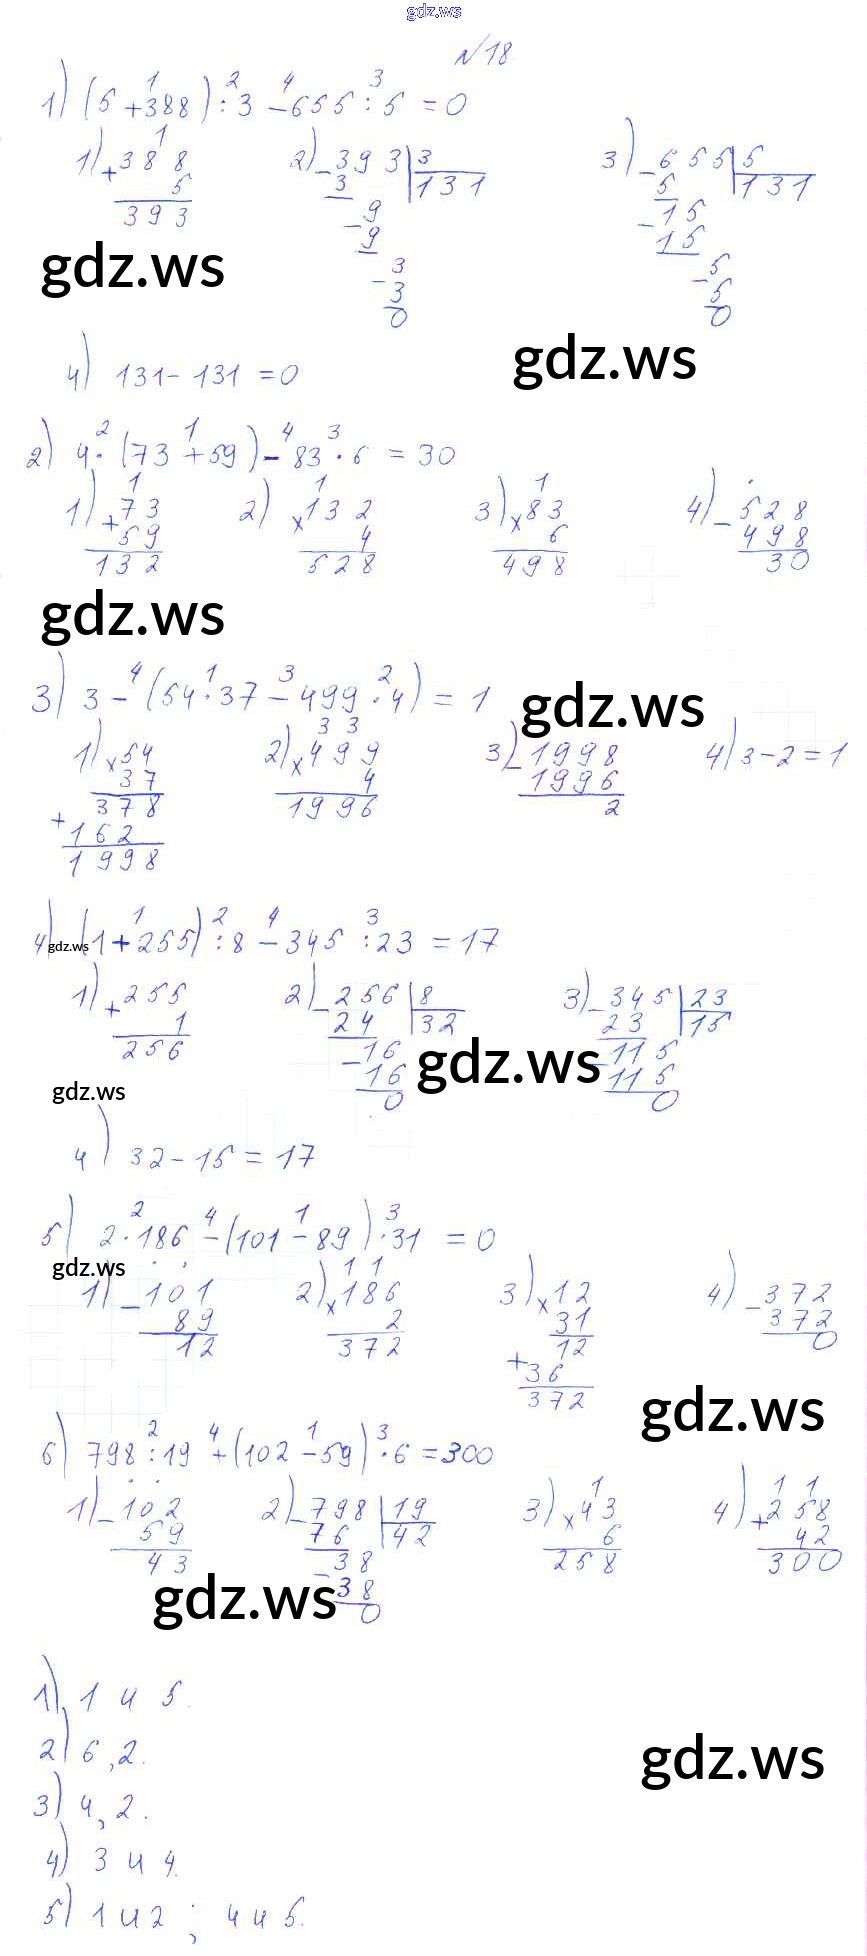 gdz.ws
№18
1) (5 + 388) : 3 - 655 : 5 = 0
1 2 4 3
1) + 388 5 393
2) - 393 | 3 131 3 - 9 9 - 3 3 0
3) - 655 | 5 131 5 - 15 15 - 5 5 0
gdz.ws
gdz.ws
4) 131 - 131 = 0
2) 4 · (73 + 59) - 83 · 6 = 30
2 1 4 3
1) + 73 59 132
2) × 132 4 528
3) × 83 6 498
4) - 528 498 30
gdz.ws
3) 3 - (54 · 37 - 499 · 4) = 1
4 1 3 2
gdz.ws
1) × 54 37 378 + 162 1998
2) × 499 4 1996
3) - 1998 1996 2
4) 3 - 2 = 1
4) (1 + 255) : 8 - 345 : 23 = 17
1 2 4 3
gdz.ws
1) + 255 1 256
2) - 256 | 8 32 24 - 16 16 0
3) - 345 | 23 15 23 - 115 115 0
gdz.ws
gdz.ws
4) 32 - 15 = 17
5) 2 · 186 - (101 - 89) · 31 = 0
2 4 1 3
gdz.ws
1) - 101 89 12
2) × 186 2 372
3) × 12 31 12 + 36 372
4) - 372 372 0
gdz.ws
6) 798 : 19 + (102 - 59) · 6 = 300
2 4 1 3
1) - 102 59 43
2) - 798 | 19 42 76 - 38 38 0
3) × 43 6 258
4) + 258 42 300
gdz.ws
1) 1 и 5.
2) 6, 2.
gdz.ws
3) 4, 2.
4) 3 и 4.
5) 1 и 2 ; 4 и 5.